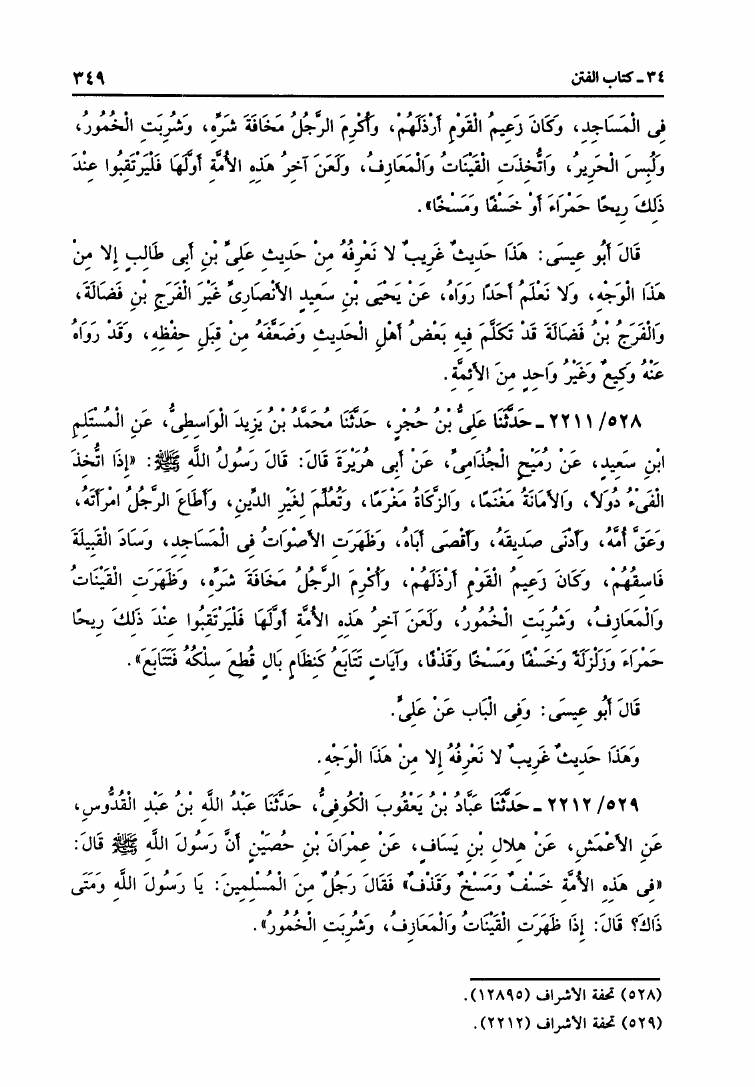 ٣٤ ـ كتاب الفتن ٣٤٩
فِى الْمَسَاجِدِ، وَكَانَ زَعِيمُ الْقَوْمِ أَرْذَلَهُمْ، وَأُكْرِمَ الرَّجُلُ مَخَافَةَ شَرِّهِ، وَشُرِبَتِ الْخُمُورُ،
وَلُبِسَ الْحَرِيرُ، وَاتُّخِذَتِ الْقَيْنَاتُ وَالْمَعَازِفُ، وَلَعَنَ آخِرُ هَذِهِ الأُمَّةِ أَوَّلَهَا فَلْيَرْتَقِبُوا عِنْدَ
ذَلِكَ رِيحًا حَمْرَاءَ أَوْ خَسْفًا وَمَسْخًا».
قَالَ أَبُو عِيسَى: هَذَا حَدِيثٌ غَرِيبٌ لا نَعْرِفُهُ مِنْ حَدِيثِ عَلِىِّ بْنِ أَبِى طَالِبٍ إِلا مِنْ
هَذَا الْوَجْهِ، وَلا نَعْلَمُ أَحَدًا رَوَاهُ، عَنْ يَحْيَى بْنِ سَعِيدٍ الأَنْصَارِىِّ غَيْرَ الْفَرَجِ بْنِ فَضَالَةَ،
وَالْفَرَجُ بْنُ فَضَالَةَ قَدْ تَكَلَّمَ فِيهِ بَعْضُ أَهْلِ الْحَدِيثِ وَضَعَّفَهُ مِنْ قِبَلِ حِفْظِهِ، وَقَدْ رَوَاهُ
عَنْهُ وَكِيعٌ وَغَيْرُ وَاحِدٍ مِنَ الأَئِمَّةِ.
٥٢٨/ ٢٢١١ ـ حَدَّثَنَا عَلِىُّ بْنُ حُجْرٍ، حَدَّثَنَا مُحَمَّدُ بْنُ يَزِيدَ الْوَاسِطِىُّ، عَنِ الْمُسْتَلِمِ
ابْنِ سَعِيدٍ، عَنْ رُمَيْحٍ الْجُذَامِىِّ، عَنْ أَبِى هُرَيْرَةَ قَالَ: قَالَ رَسُولُ اللَّهِ ﷺ: «إِذَا اتُّخِذَ
الْفَىْءُ دُوَلاً، وَالأَمَانَةُ مَغْنَمًا، وَالزَّكَاةُ مَغْرَمًا، وَتُعُلِّمَ لِغَيْرِ الدِّينِ، وَأَطَاعَ الرَّجُلُ امْرَأَتَهُ،
وَعَقَّ أُمَّهُ، وَأَدْنَى صَدِيقَهُ، وَأَقْصَى أَبَاهُ، وَظَهَرَتِ الأَصْوَاتُ فِى الْمَسَاجِدِ، وَسَادَ الْقَبِيلَةَ
فَاسِقُهُمْ، وَكَانَ زَعِيمُ الْقَوْمِ أَرْذَلَهُمْ، وَأُكْرِمَ الرَّجُلُ مَخَافَةَ شَرِّهِ، وَظَهَرَتِ الْقَيْنَاتُ
وَالْمَعَازِفُ، وَشُرِبَتِ الْخُمُورُ، وَلَعَنَ آخِرُ هَذِهِ الأُمَّةِ أَوَّلَهَا فَلْيَرْتَقِبُوا عِنْدَ ذَلِكَ رِيحًا
حَمْرَاءَ وَزَلْزَلَةً وَخَسْفًا وَمَسْخًا وَقَذْفًا، وَآيَاتٍ تَتَابَعُ كَنِظَامٍ بَالٍ قُطِعَ سِلْكُهُ فَتَتَابَعَ».
قَالَ أَبُو عِيسَى: وَفِى الْبَابِ عَنْ عَلِىٍّ.
وَهَذَا حَدِيثٌ غَرِيبٌ لا نَعْرِفُهُ إِلا مِنْ هَذَا الْوَجْهِ.
٥٢٩/ ٢٢١٢ ـ حَدَّثَنَا عَبَّادُ بْنُ يَعْقُوبَ الْكُوفِىُّ، حَدَّثَنَا عَبْدُ اللَّهِ بْنُ عَبْدِ الْقُدُّوسِ،
عَنِ الأَعْمَشِ، عَنْ هِلالِ بْنِ يَسَافٍ، عَنْ عِمْرَانَ بْنِ حُصَيْنٍ أَنَّ رَسُولَ اللَّهِ ﷺ قَالَ:
«فِى هَذِهِ الأُمَّةِ خَسْفٌ وَمَسْخٌ وَقَذْفٌ» فَقَالَ رَجُلٌ مِنَ الْمُسْلِمِينَ: يَا رَسُولَ اللَّهِ وَمَتَى
ذَاكَ؟ قَالَ: إِذَا ظَهَرَتِ الْقَيْنَاتُ وَالْمَعَازِفُ، وَشُرِبَتِ الْخُمُورُ».
(٥٢٨) تحفة الأشراف (١٢٨٩٥).
(٥٢٩) تحفة الأشراف (٢٢١٢).